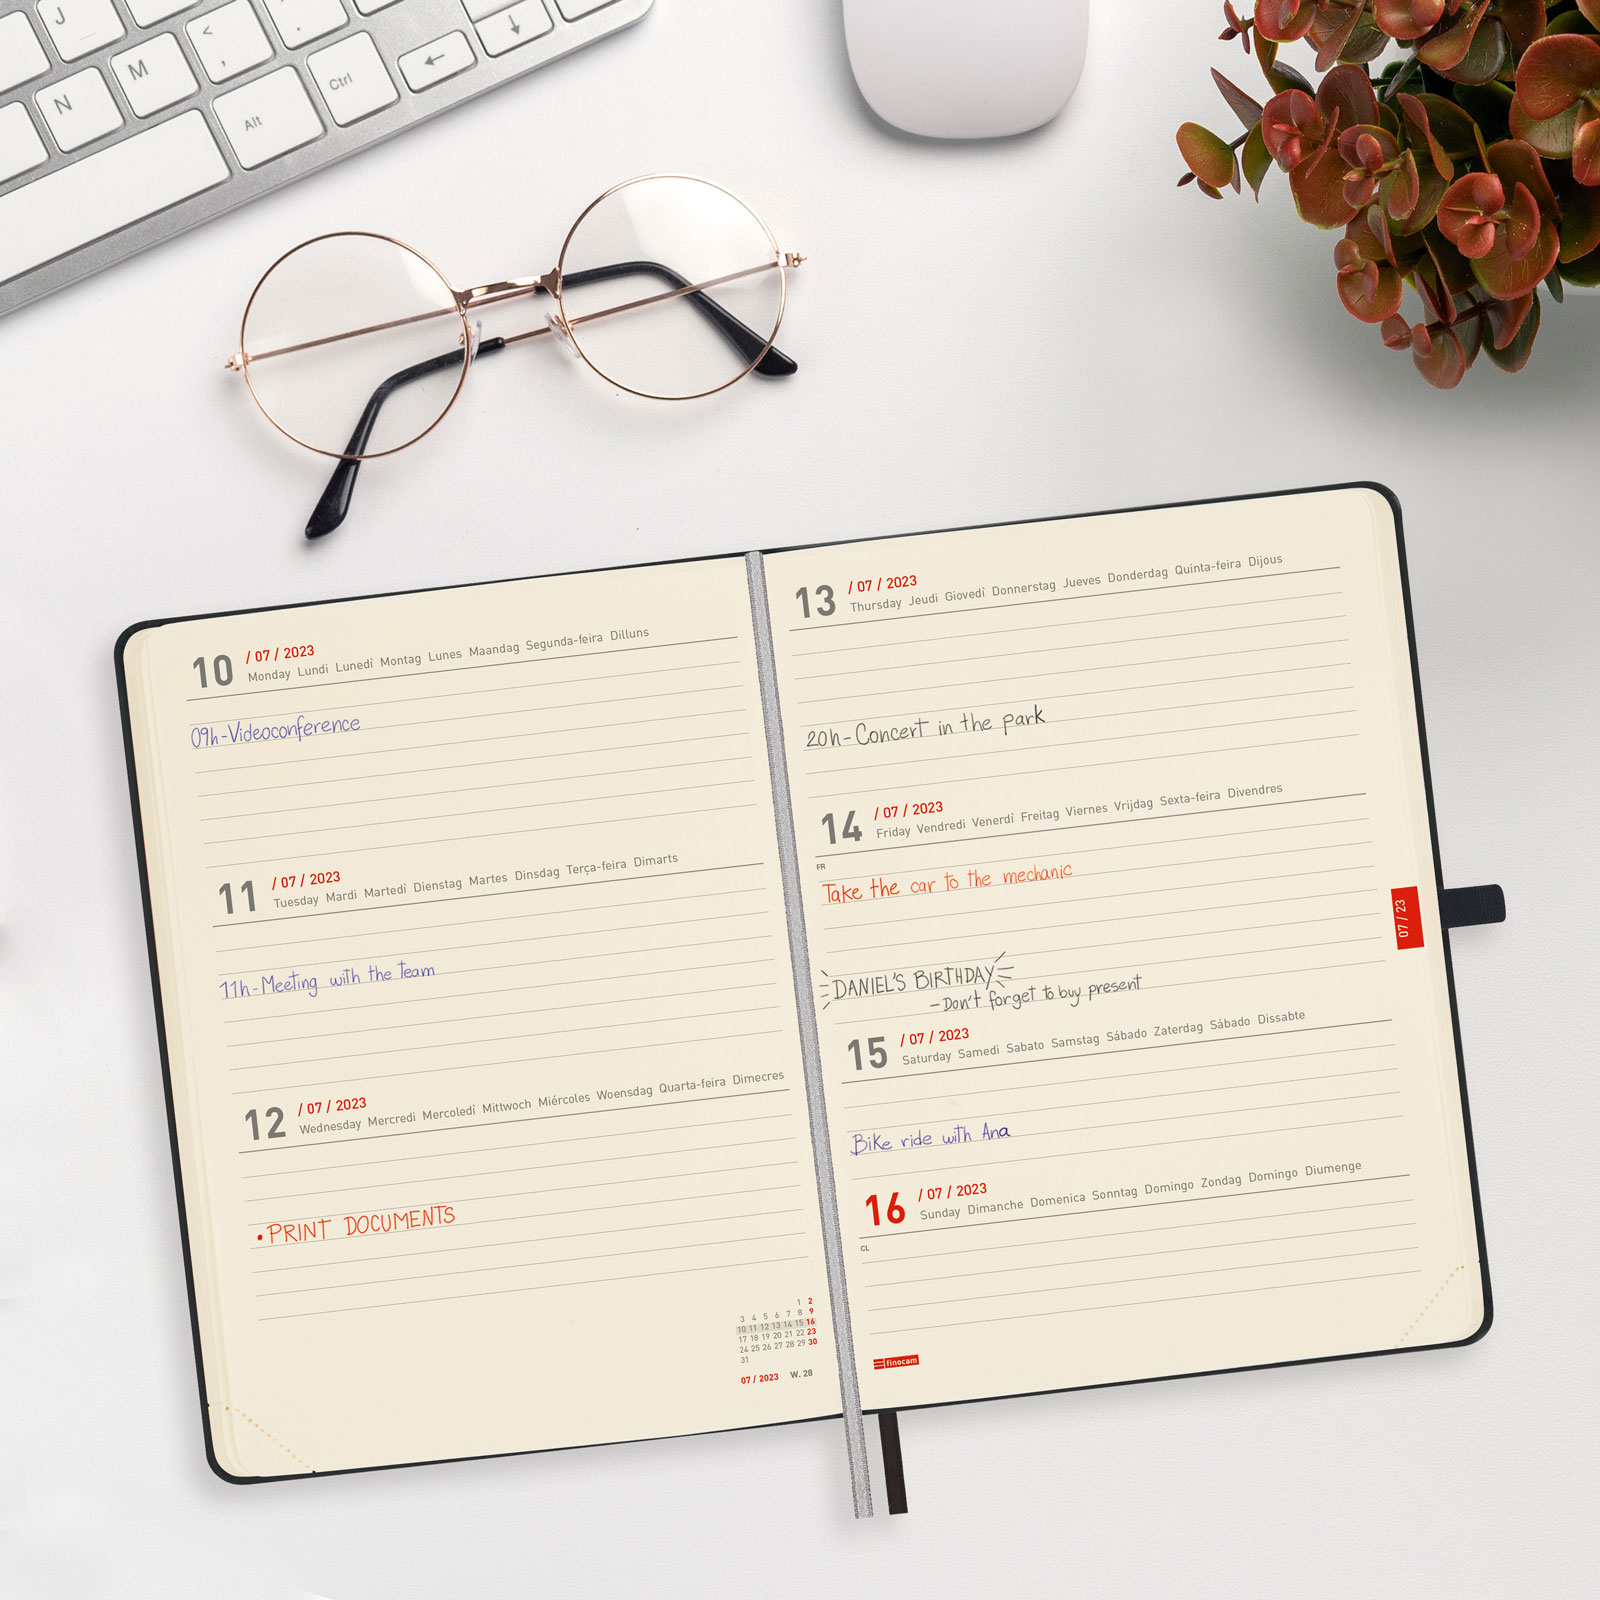 J
N
M
<
,
.
Alt
Ctrl
←
↓
10 / 07 / 2023
Monday Lundi Lunedì Montag Lunes Maandag Segunda-feira Dilluns
09h-Videoconference
11 / 07 / 2023
Tuesday Mardi Martedì Dienstag Martes Dinsdag Terça-feira Dimarts
11h-Meeting with the team
12 / 07 / 2023
Wednesday Mercredi Mercoledì Mittwoch Miércoles Woensdag Quarta-feira Dimecres
•PRINT DOCUMENTS
1 2
3 4 5 6 7 8 9
10 11 12 13 14 15 16
17 18 19 20 21 22 23
24 25 26 27 28 29 30
31
07 / 2023 W. 28
13 / 07 / 2023
Thursday Jeudi Giovedì Donnerstag Jueves Donderdag Quinta-feira Dijous
20h-Concert in the park
14 / 07 / 2023
Friday Vendredi Venerdì Freitag Viernes Vrijdag Sexta-feira Divendres
FR
Take the car to the mechanic
DANIEL'S BIRTHDAY
-Don't forget to buy present
15 / 07 / 2023
Saturday Samedi Sabato Samstag Sábado Zaterdag Sábado Dissabte
Bike ride with Ana
16 / 07 / 2023
Sunday Dimanche Domenica Sonntag Domingo Zondag Domingo Diumenge
CL
finocam
07 / 23